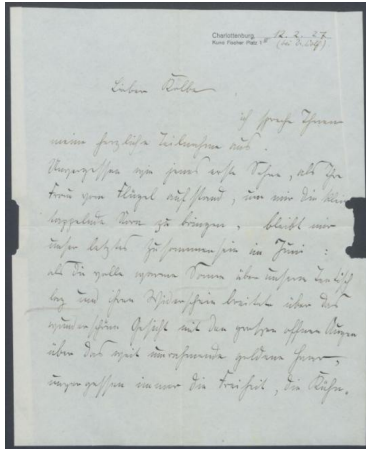 Charlottenburg, 12. 2. 27
Kuno Fischer Platz 1 III (bei Dr. Wolf)
Lieber Kolbe
ich spreche Ihnen
meine herzliche Teilnahme aus.
Unvergessen wie jenes erste Sehen, als Ihre
Frau vom Flügel aufstand, um mir die kleine
Nora zu bringen, bleibt mir
unser letztes Zusammensein im Juni:
als die volle warme Sonne über unserm Teetisch
lag und ihren Widerschein breitete über das
wunderschöne Gesicht mit den großen offnen Augen
über das weit umrahmende goldene Haar,
unvergessen immer die Freiheit, die Kühn-